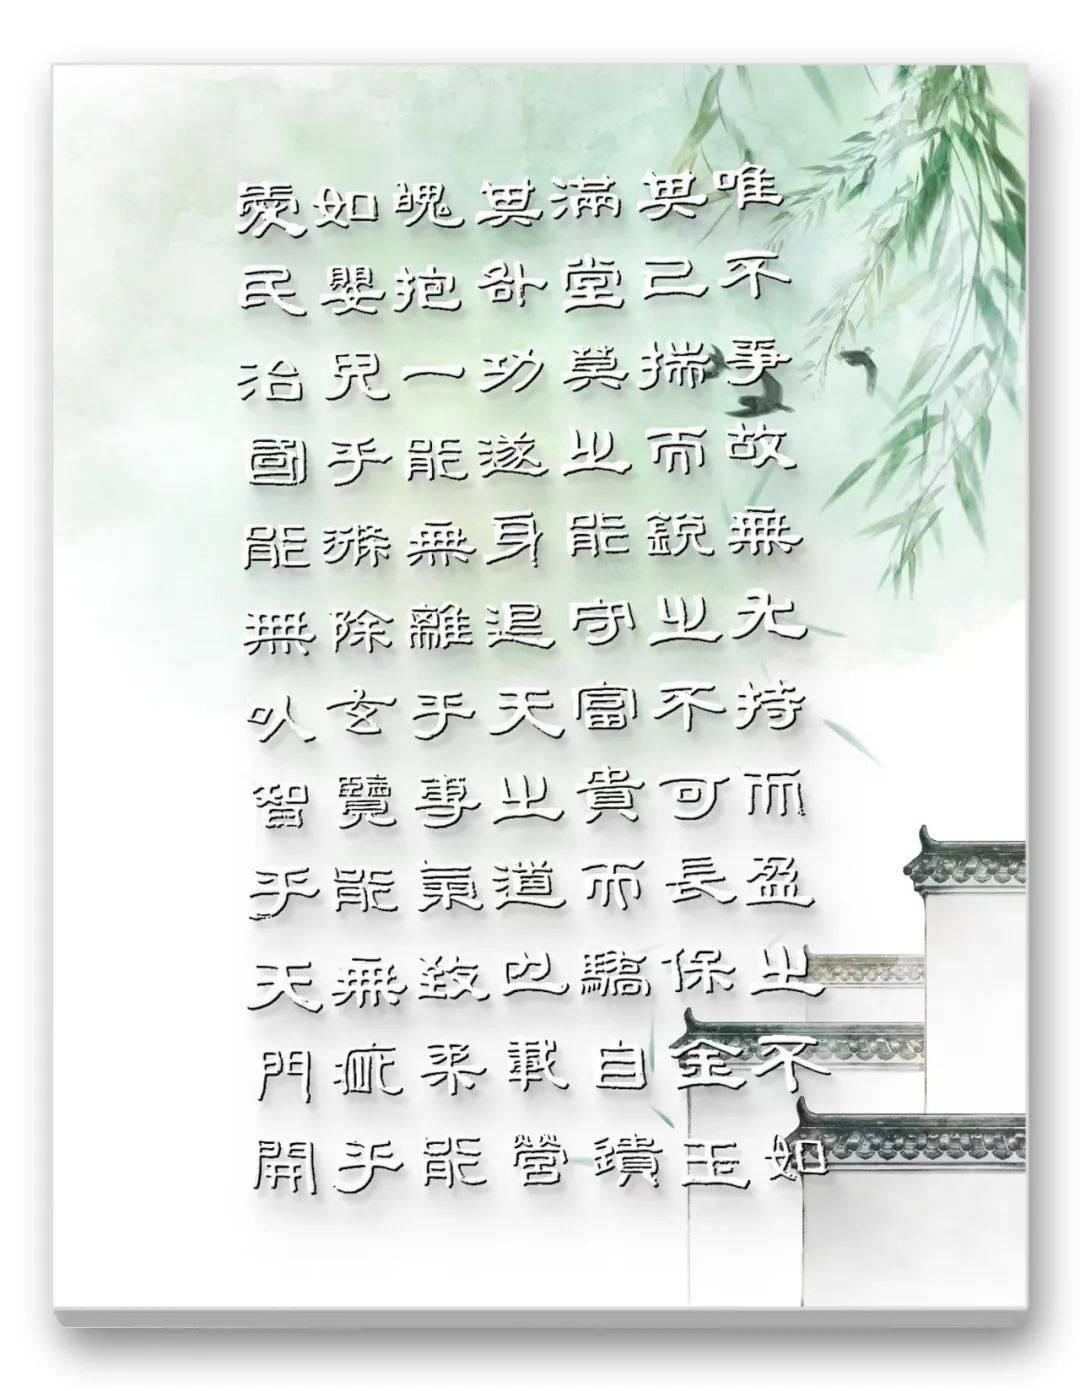 唯不爭故無尤持而盈之不如
其已揣而銳之不可長保金玉
滿堂莫之能守富貴而驕自遺
其咎功遂身退天之道也載營
魄抱一能無離乎專氣致柔能
如嬰兒乎滌除玄覽能無疵乎
愛民治國能無以智乎天門開